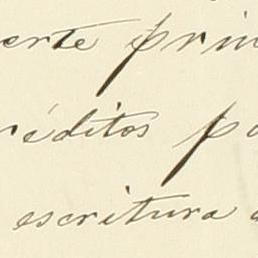 erte prin
réditos po
escritura a